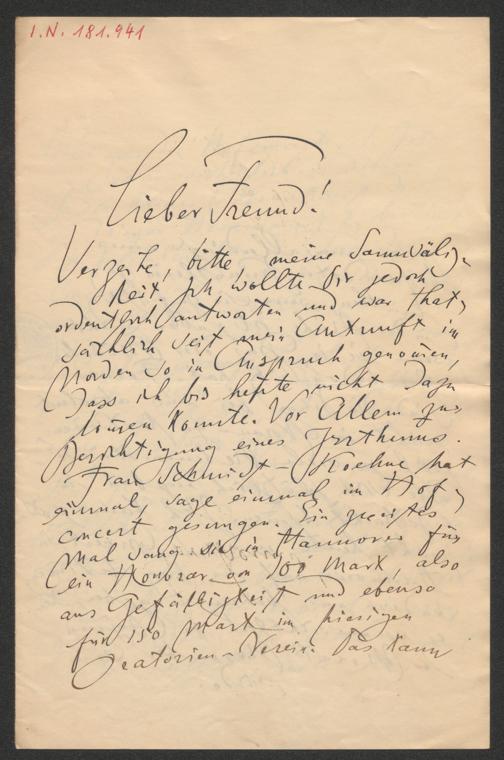 I.N. 181.941
Lieber Freund!
Verzeihe, bitte meine Saumsälig-
keit. Ich wollte Dir jedoch
ordentlich antworten und war that-
sächlich seit mein Ankunft im
Norden so in Anspruch genomen,
dass ich bis heute nicht dazu
komen konnte. Vor Allem zur
Berichtigung eines Irrthums.
Frau Schmidt-Koehne hat
einmal, sage einmal im Hof-
concert gesungen. Ein zweites
Mal sang sie in Hannover für
ein Honorar von 100 Mark, also
aus Gefälligkeit und ebenso
für 150 Mark im hiesigen
Oratorien-Verein. Das kann